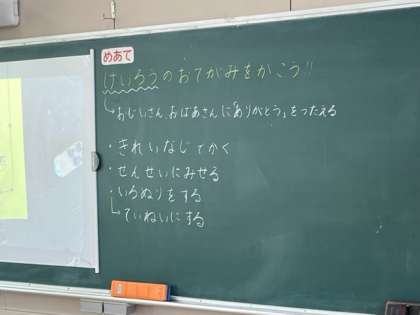 めあて
けいろうのおてがみをかこう!!
↳おじいさん、おばあさんに「ありがとう」をつたえる
・きれいなじでかく
・せんせいにみせる
・いろぬりをする
↳ていねいにする